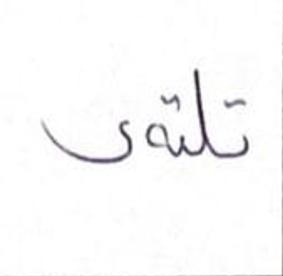 تلقى